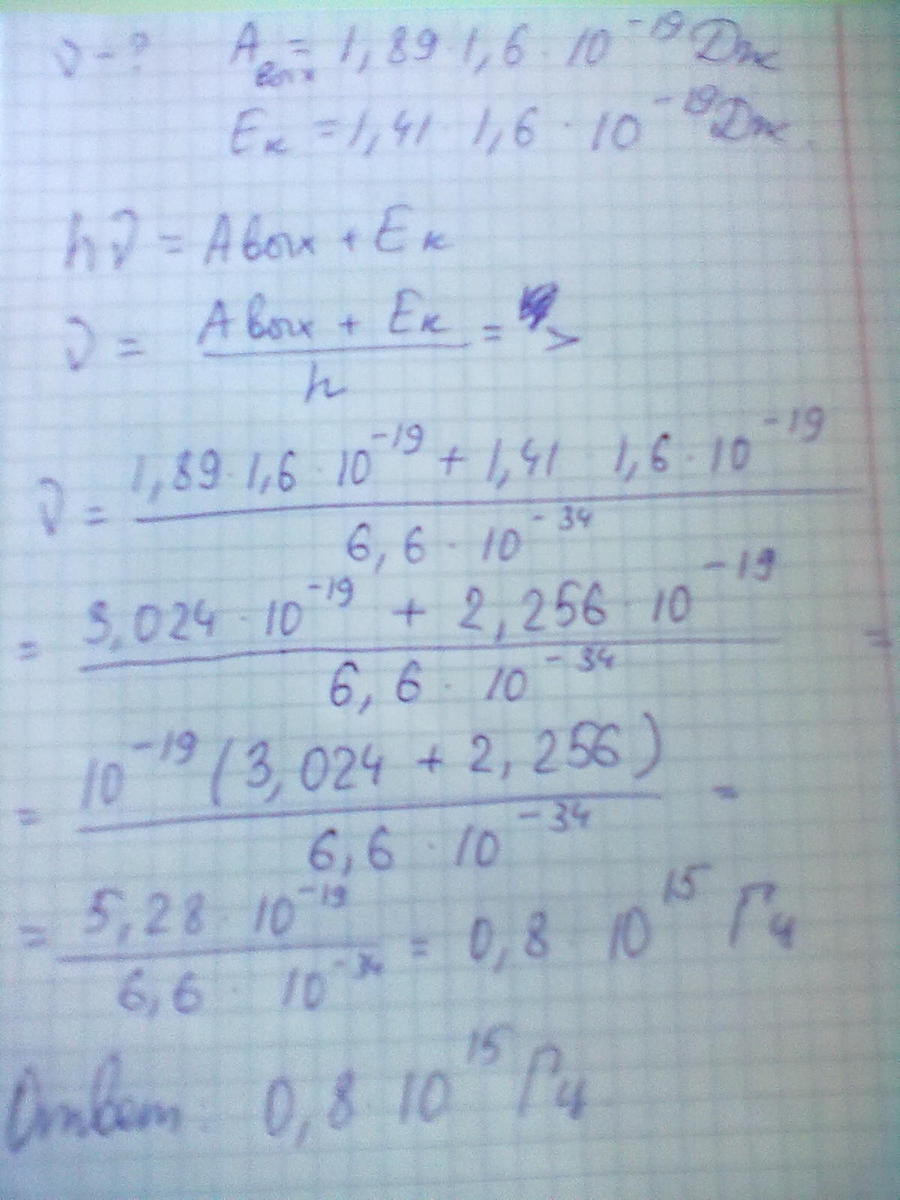 ν - ? Aвых = 1,89 · 1,6 · 10^-19 Дж
Eк = 1,41 · 1,6 · 10^-19 Дж.
hν = Aвых + Eк
ν = (Aвых + Eк) / h =>
ν = (1,89 · 1,6 · 10^-19 + 1,41 1,6 · 10^-19) / (6,6 · 10^-34)
= (3,024 · 10^-19 + 2,256 · 10^-19) / (6,6 · 10^-34) =
= 10^-19 (3,024 + 2,256) / (6,6 · 10^-34) =
= (5,28 · 10^-19) / (6,6 · 10^-34) = 0,8 · 10^15 Гц
Ответ: 0,8 · 10^15 Гц